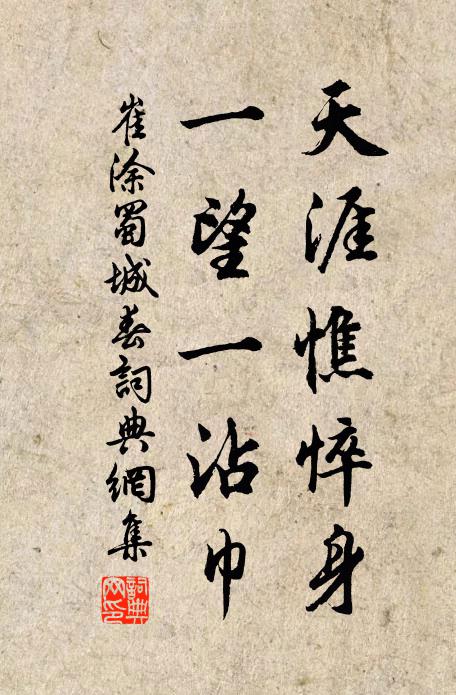 天涯憔悴身
一望一沾巾
崔涂蜀城春詞典網集
詞典網印